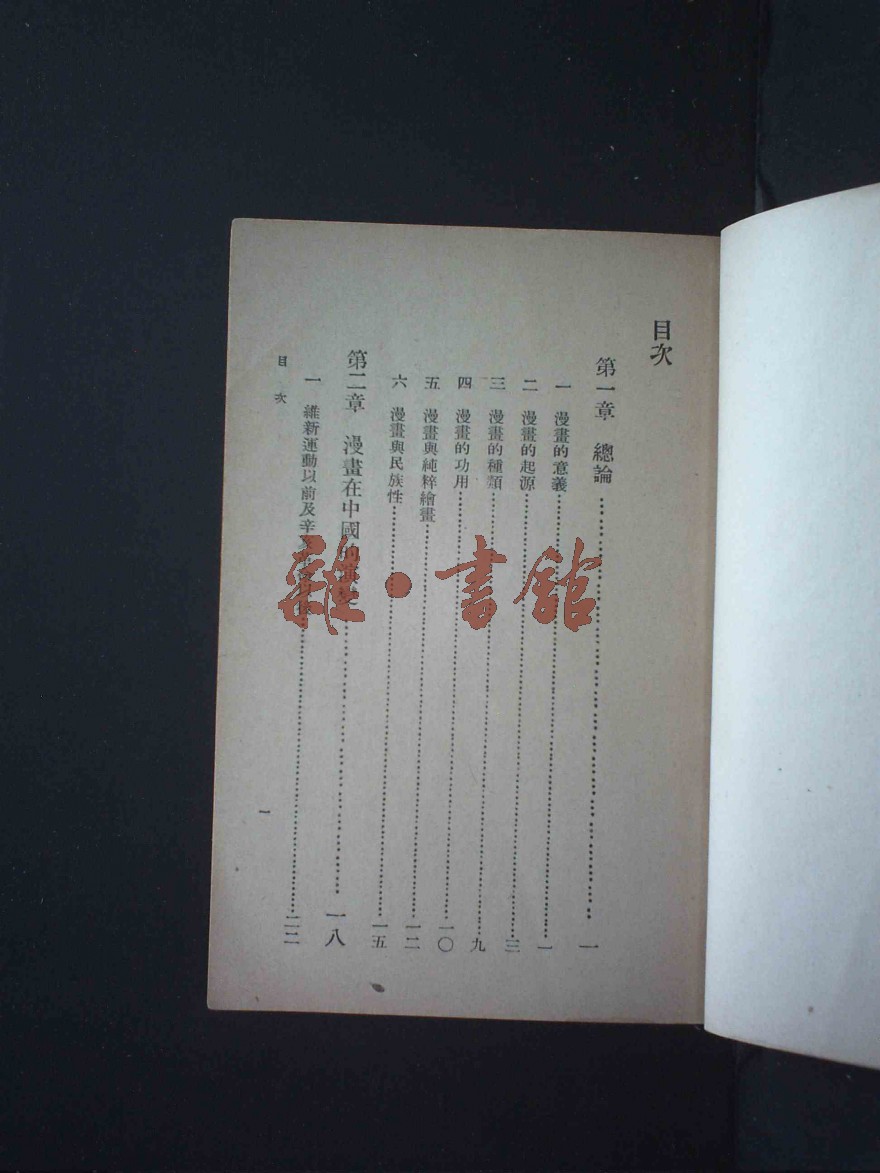 目次
第一章 總論…………一
一 漫畫的意義…………一
二 漫畫的起源…………三
三 漫畫的種類…………九
四 漫畫的功用…………一〇
五 漫畫與純粹繪畫…………一二
六 漫畫與民族性…………一五
第二章 漫畫在中國的演變…………一八
一 維新運動以前及辛亥…………二二
目次
一
雜·書館